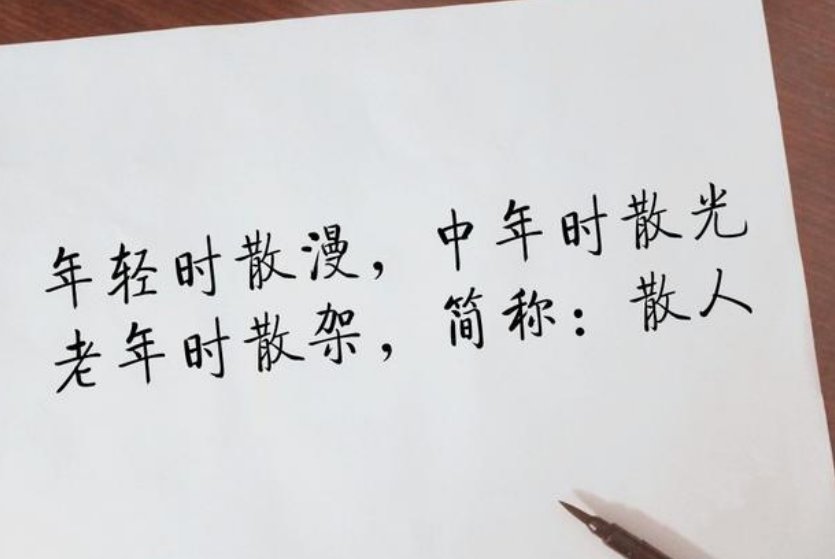 年轻时散漫，中年时散光
老年时散架，简称：散人